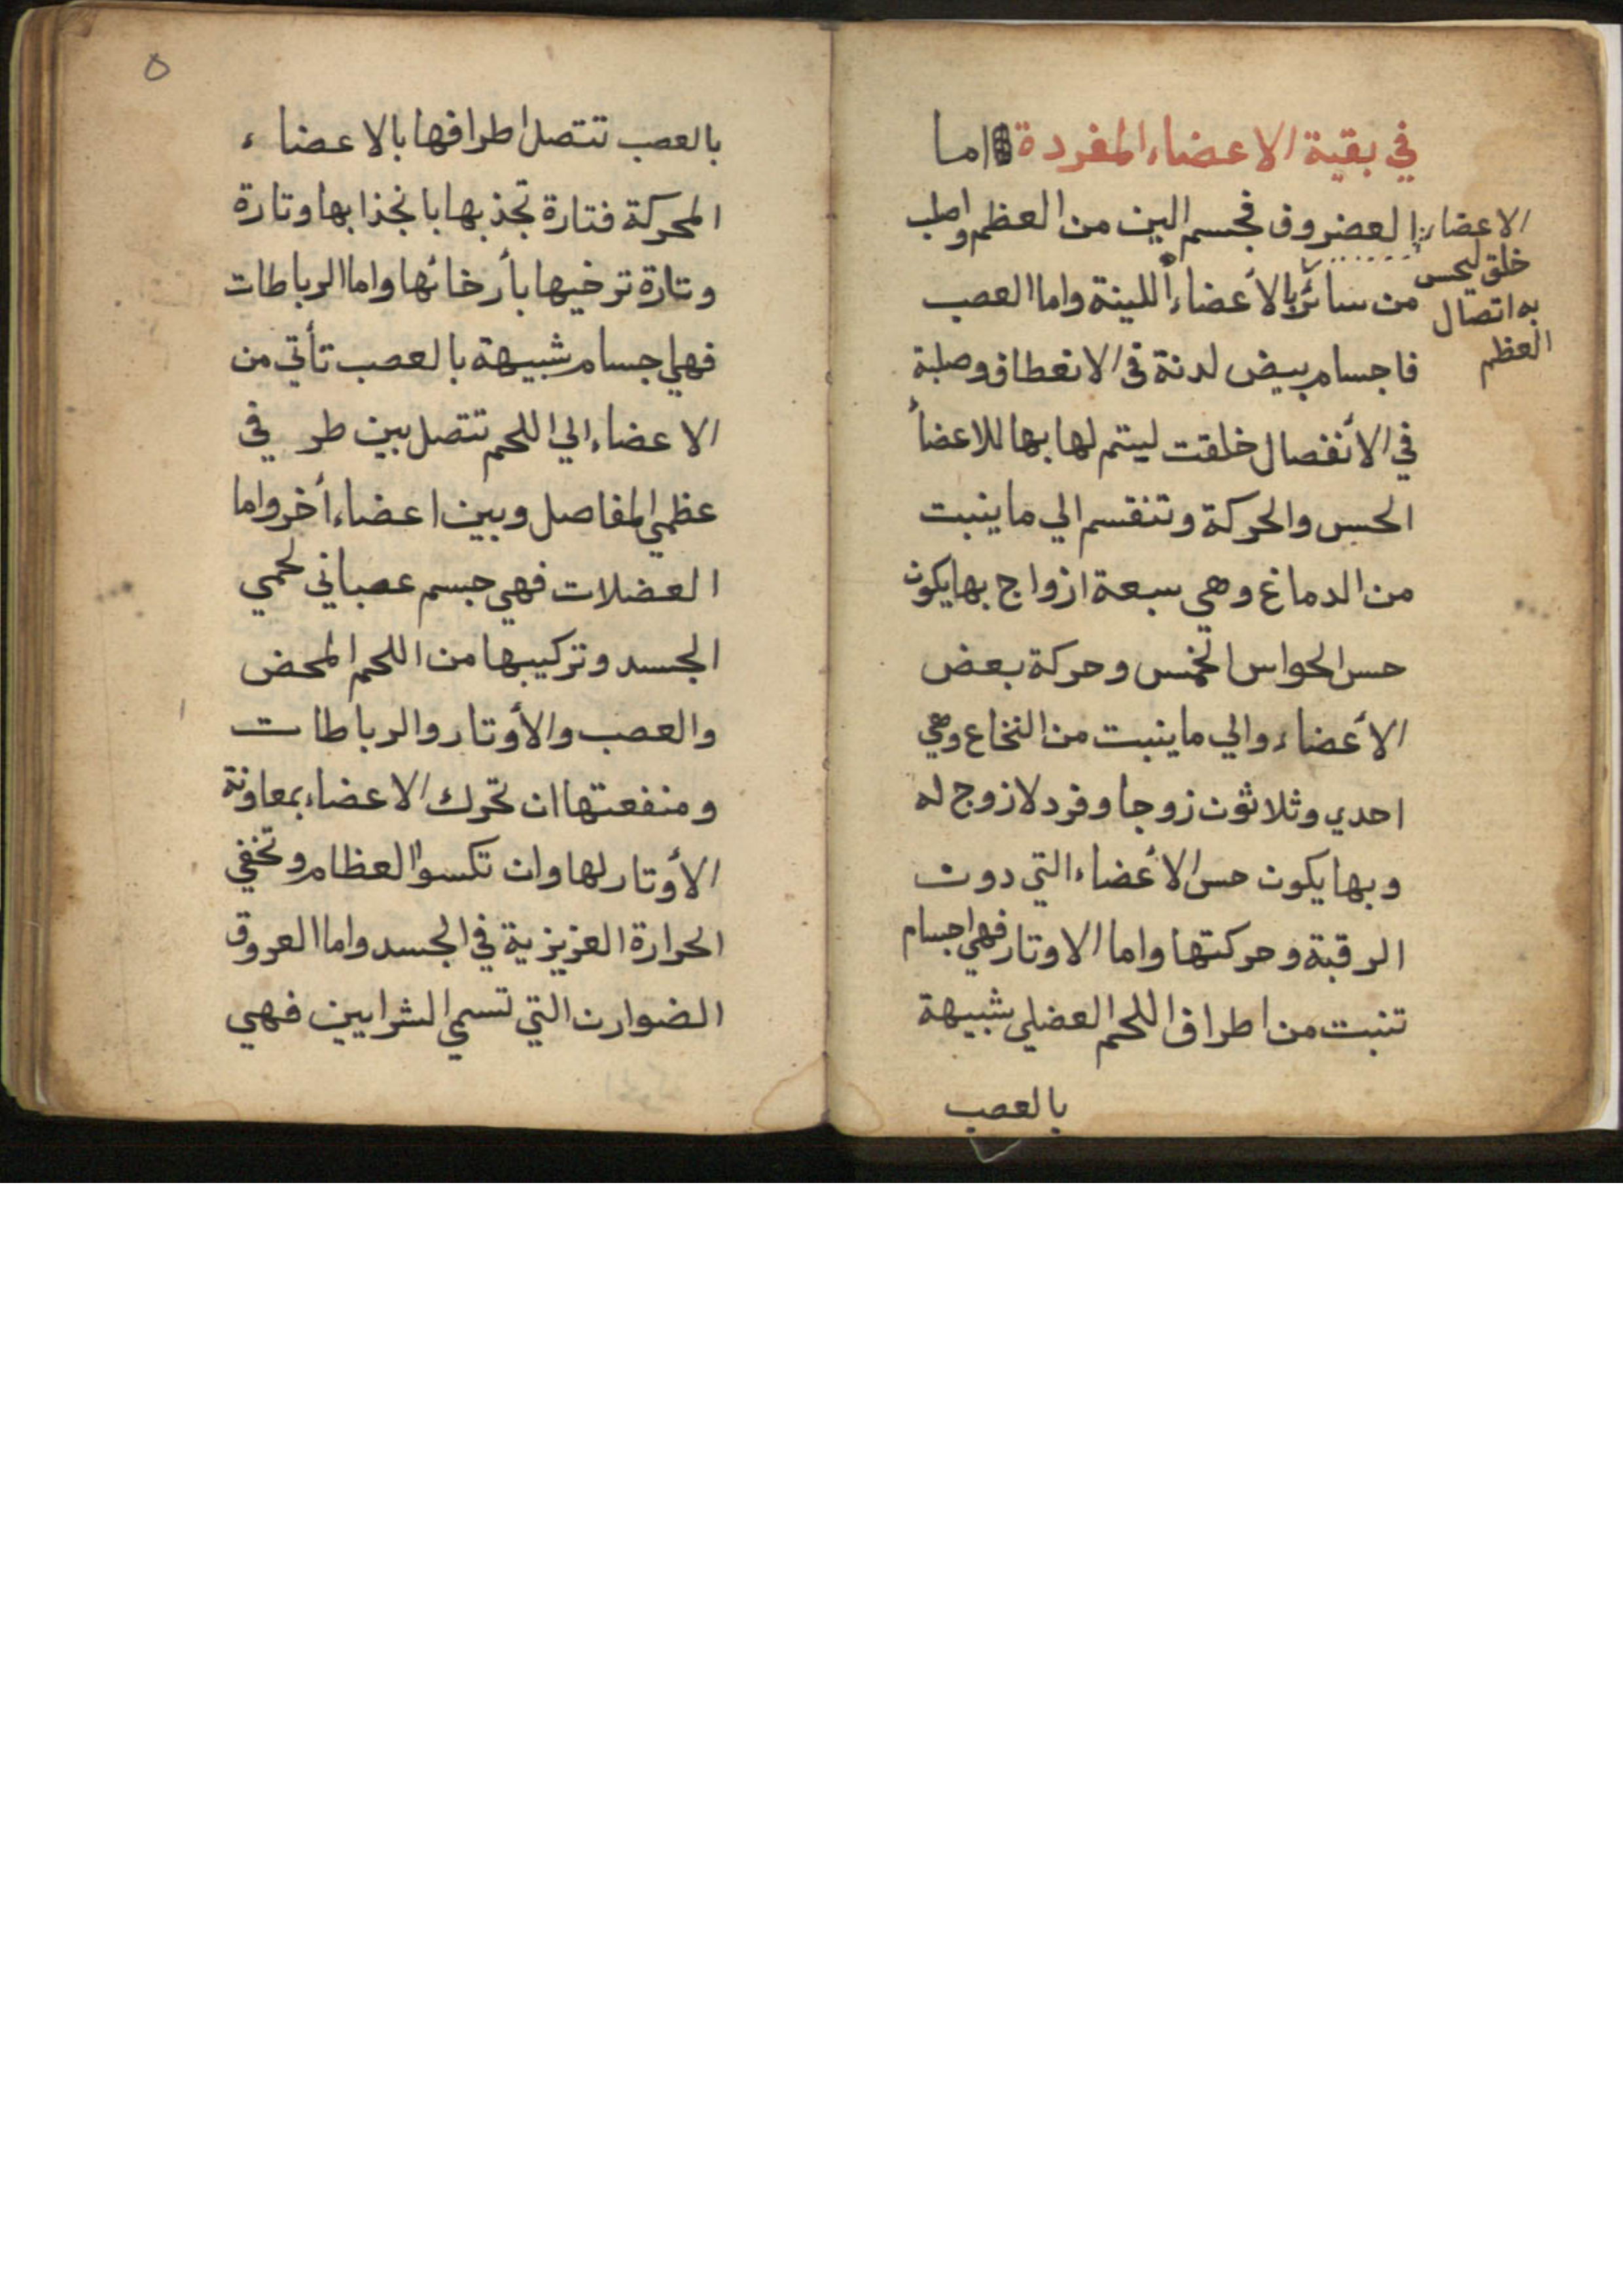 في بقية الاعضاء المفردة اما
العضروف فجسم الين من العظم واصلب
من سائر بالأعضاء اللينة واما العصب
فاجسام بيض لدنة في الانعطاف وصلبة
في الأنفصال خلقت ليتم لها بها للاعضأ
الحس والحركة وتنقسم الي ما ينبت
من الدماغ وهي سبعة ازواج بها يكون
حس الحواس الخمس وحركة بعض
الأعضاء والي ما ينبت من النخاع وهي
احدي وثلاثون زوجا وفرد لا زوج له
وبها يكون حس الأعضاء التي دون
الرقبة وحركتها واما الاوتار فهي اجسام
تنبت من اطراف اللحم العضلي شبيهة
بالعصب
الاعضاء
خلق ليحس
به اتصال
العظم
٥
بالعصب تتصل اطرافها بالاعضاء
المحركة فتارة تجذبها بانجذابها وتارة
وتارة ترخيها بأرخائها واما الرباطات
فهي اجسام شبيهة بالعصب تأتي من
الاعضاء الي اللحم تتصل بين طرفي
عظمي المفاصل وبين اعضاء أخر واما
العضلات فهي جسم عصباني لحمي
الجسد وتركيبها من اللحم المحض
والعصب والأوتار والرباطات
ومنفعتها ان تحرك الاعضاء بمعاونة
الأوتار لها وان تكسوا العظام وتخفي
الحرارة العزيزية في الجسد واما العروق
الضوارن التي تسمي الشرايين فهي